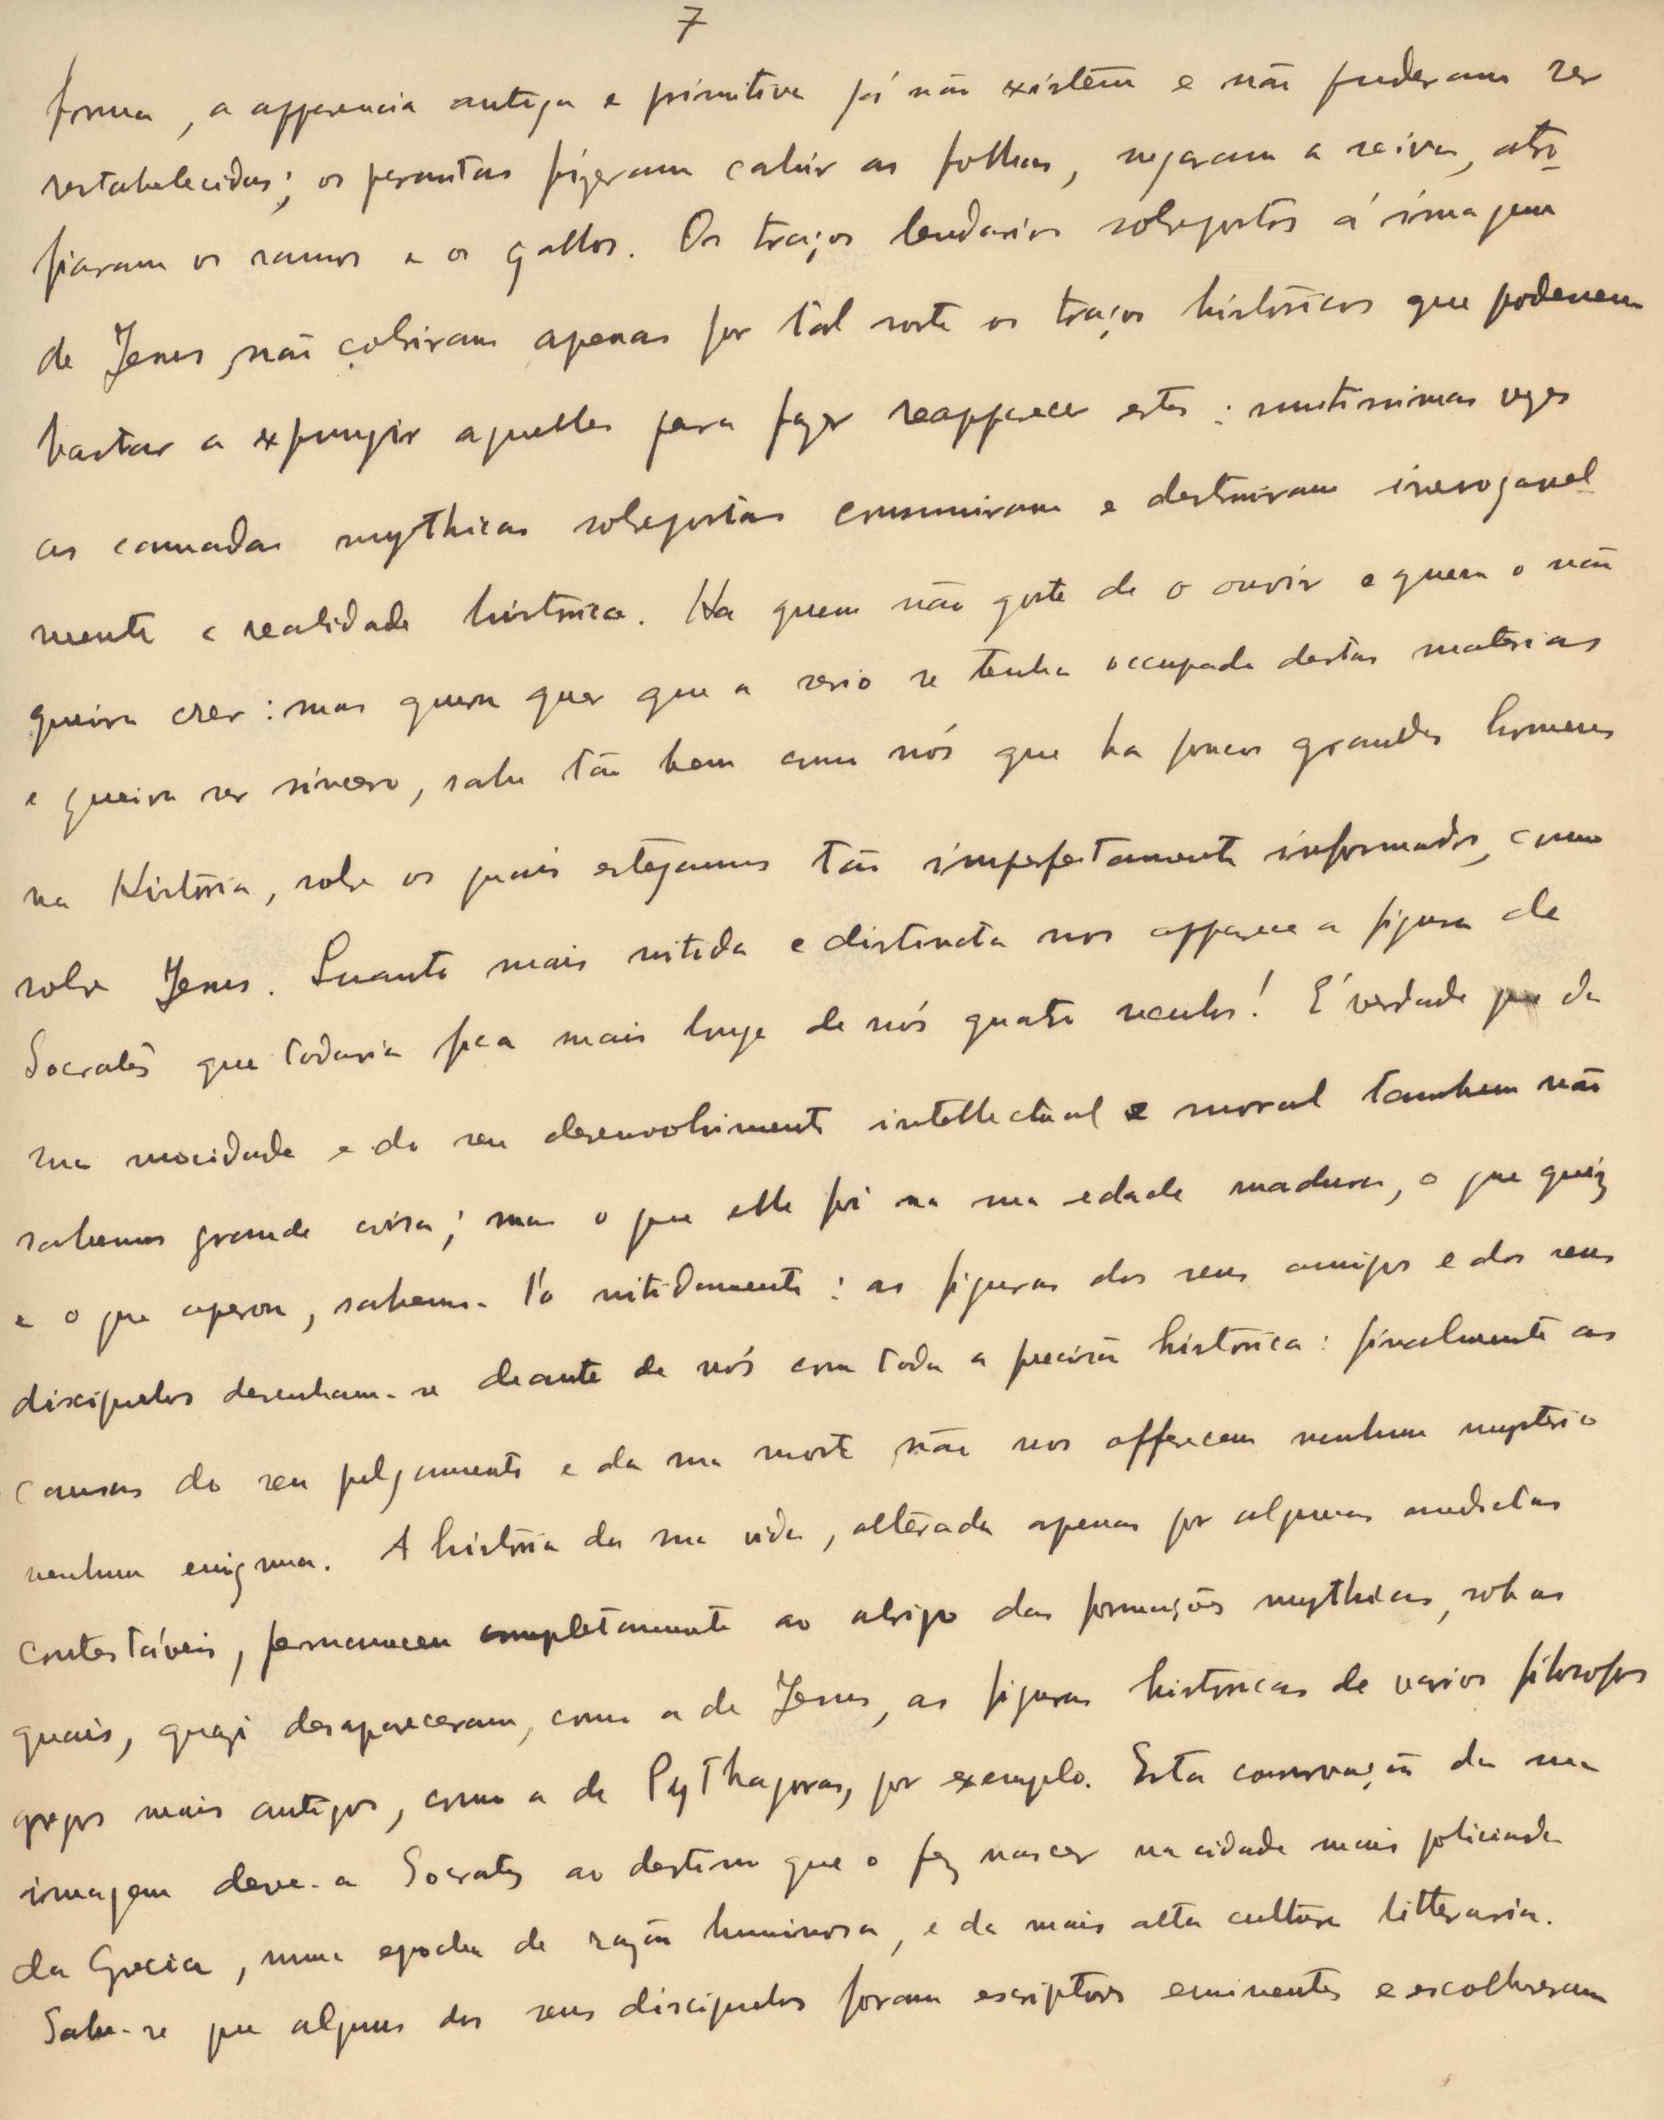 7
forma, a apparencia antiga e primitiva já não existem e não puderam ser
restabelecidas; os parasitas fizeram cahir as folhas, negaram a seiva, atro-
fiaram os ramos e os galhos. Os traços lendarios sobrepostos á imagem
de Jesus não cobriram apenas por tal sorte os traços históricos que podessem
bastar a expungir aquelles para fazer reapparecer estes: muitissimas vezes
as camadas mythicas sobrepostas consumiram e destruiram irrevogavel-
mente a realidade histórica. Ha quem não goste de o ouvir e quem o não
queira crer: mas quem quer que a serio se tenha occupado destas materias
e queira ser sincero, sabe tão bem como nós que ha poucos grandes homens
na História, sobre os quais estejamos tão imperfeitamente informados, como
sobre Jesus. Quanto mais nitida e distincta nos apparece a figura de
Socrates que todavia fica mais longe de nós quatro seculos! É verdade que da
sua mocidade e do seu desenvolvimento intellectual e moral tambem não
sabemos grande coisa; mas o que elle foi na sua edade madura, o que quiz
e o que operou, sabemo-lo nitidamente: as figuras dos seus amigos e dos seus
discipulos desenham-se deante de nós com toda a precisão histórica: finalmente as
causas do seu julgamento e da sua morte não nos offerecem nenhum mysterio
nenhum enigma. A história da sua vida, alterada apenas por algumas anedoctas
contestáveis, permaneceu completamente ao abrigo das formações mythicas, sob as
quais, quazi desapareceram, como a de Jesus, as figuras históricas de varios filosofos
gregos mais antigos, como a de Pythagoras, por exemplo. Esta conservação da sua
imagem deve-a Socrates ao destino que o fez nascer na cidade mais policiada
da Grecia, numa epocha de razão luminosa, e da mais alta cultura litteraria.
Sabe-se que alguns dos seus discipulos foram escriptores eminentes e escolheram